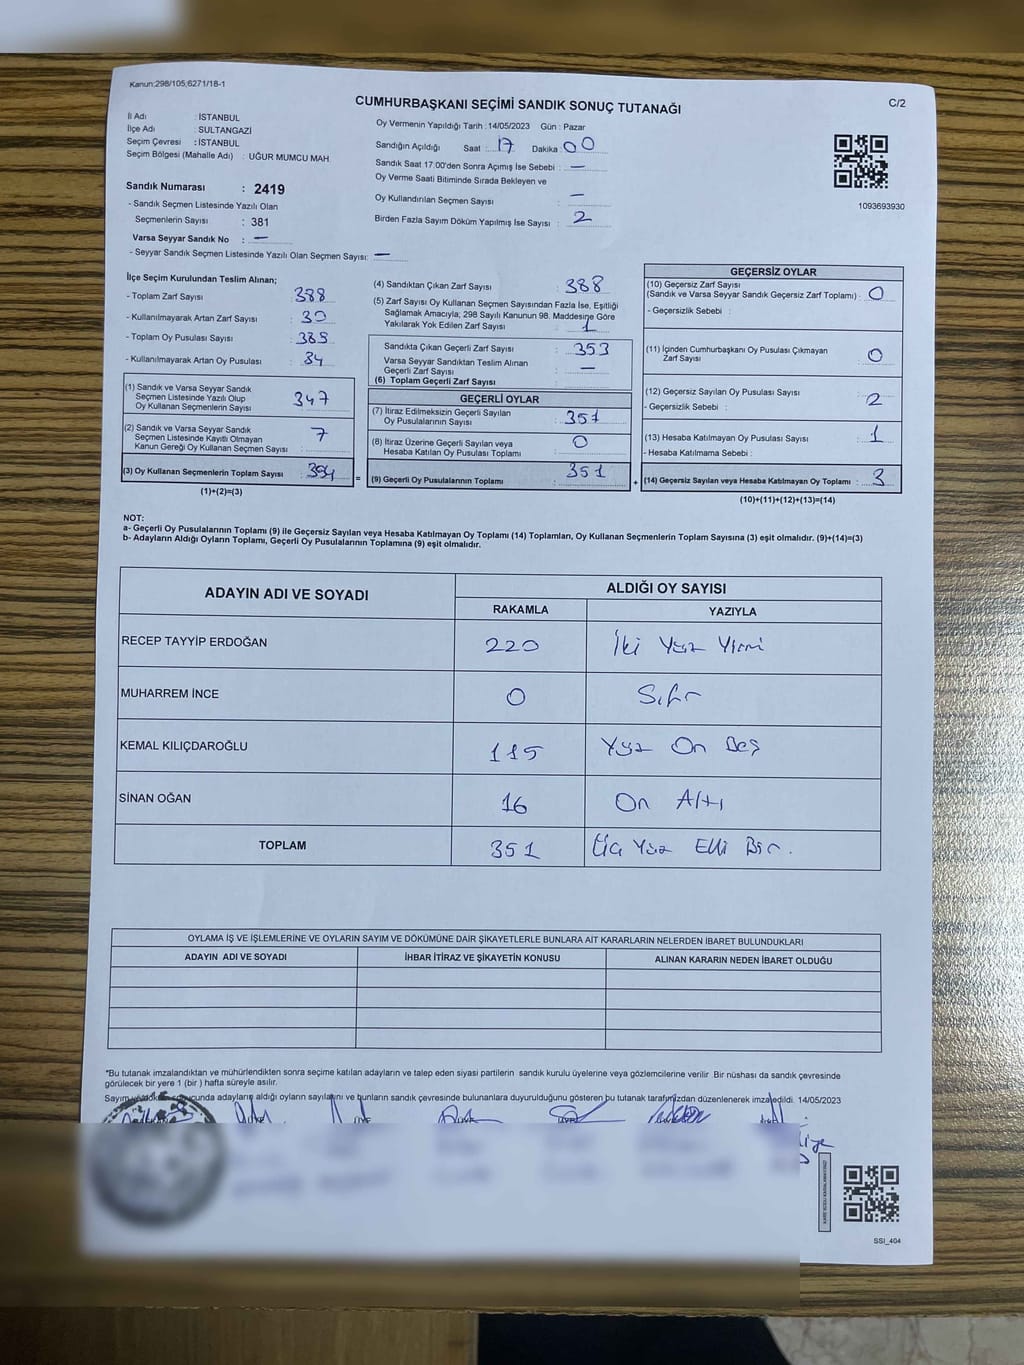 Kanun:298/105;6271/18-1
C/2
CUMHURBAŞKANI SEÇİMİ SANDIK SONUÇ TUTANAĞI
İl Adı : İSTANBUL
İlçe Adı : SULTANGAZİ
Seçim Çevresi : İSTANBUL
Seçim Bölgesi (Mahalle Adı) : UĞUR MUMCU MAH.
Sandık Numarası : 2419
- Sandık Seçmen Listesinde Yazılı Olan
Seçmenlerin Sayısı : 381
Varsa Seyyar Sandık No : —
- Seyyar Sandık Seçmen Listesinde Yazılı Olan Seçmen Sayısı: —
Oy Vermenin Yapıldığı Tarih :14/05/2023 Gün : Pazar
Sandığın Açıldığı Saat : 17 Dakika : 00
Sandık Saat 17:00'den Sonra Açımış İse Sebebi : —
Oy Verme Saati Bitiminde Sırada Bekleyen ve
Oy Kullandırılan Seçmen Sayısı : —
Birden Fazla Sayım Döküm Yapılmış İse Sayısı : 2
1093693930
İlçe Seçim Kurulundan Teslim Alınan;
- Toplam Zarf Sayısı : 388
- Kullanılmayarak Artan Zarf Sayısı : 30
- Toplam Oy Pusulası Sayısı : 388
- Kullanılmayarak Artan Oy Pusulası : 34
(1) Sandık ve Varsa Seyyar Sandık
Seçmen Listesinde Yazılı Olup
Oy Kullanan Seçmenlerin Sayısı : 347
(2) Sandık ve Varsa Seyyar Sandık
Seçmen Listesinde Kayıtlı Olmayan
Kanun Gereği Oy Kullanan Seçmen Sayısı : 7
(3) Oy Kullanan Seçmenlerin Toplam Sayısı : 354
(1)+(2)=(3)
(4) Sandıktan Çıkan Zarf Sayısı : 388
(5) Zarf Sayısı Oy Kullanan Seçmen Sayısından Fazla İse, Eşitliği
Sağlamak Amacıyla; 298 Sayılı Kanunun 98. Maddesine Göre
Yakılarak Yok Edilen Zarf Sayısı : 1
Sandıkta Çıkan Geçerli Zarf Sayısı : 353
Varsa Seyyar Sandıktan Teslim Alınan
Geçerli Zarf Sayısı : —
(6) Toplam Geçerli Zarf Sayısı :
GEÇERLİ OYLAR
(7) İtiraz Edilmeksizin Geçerli Sayılan
Oy Pusulalarının Sayısı : 351
(8) İtiraz Üzerine Geçerli Sayılan veya
Hesaba Katılan Oy Pusulası Toplamı : 0
= (9) Geçerli Oy Pusulalarının Toplamı : 351
GEÇERSİZ OYLAR
(10) Geçersiz Zarf Sayısı
(Sandık ve Varsa Seyyar Sandık Geçersiz Zarf Toplamı) : 0
- Geçersizlik Sebebi :
(11) İçinden Cumhurbaşkanı Oy Pusulası Çıkmayan
Zarf Sayısı : 0
(12) Geçersiz Sayılan Oy Pusulası Sayısı : 2
- Geçersizlik Sebebi :
(13) Hesaba Katılmayan Oy Pusulası Sayısı : 1
- Hesaba Katılmama Sebebi :
+ (14) Geçersiz Sayılan veya Hesaba Katılmayan Oy Toplamı : 3
(10)+(11)+(12)+(13)=(14)
NOT:
a- Geçerli Oy Pusulalarının Toplamı (9) ile Geçersiz Sayılan veya Hesaba Katılmayan Oy Toplamı (14) Toplamları, Oy Kullanan Seçmenlerin Toplam Sayısına (3) eşit olmalıdır. (9)+(14)=(3)
b- Adayların Aldığı Oyların Toplamı, Geçerli Oy Pusulalarının Toplamına (9) eşit olmalıdır.
ADAYIN ADI VE SOYADI
ALDIĞI OY SAYISI
RAKAMLA YAZIYLA
RECEP TAYYİP ERDOĞAN 220 İki Yüz Yirmi
MUHARREM İNCE 0 Sıfır
KEMAL KILIÇDAROĞLU 115 Yüz On Beş
SİNAN OĞAN 16 On Altı
TOPLAM 351 Üç Yüz Elli Bir.
OYLAMA İŞ VE İŞLEMLERİNE VE OYLARIN SAYIM VE DÖKÜMÜNE DAİR ŞİKAYETLERLE BUNLARA AİT KARARLARIN NELERDEN İBARET BULUNDUKLARI
ADAYIN ADI VE SOYADI İHBAR İTİRAZ VE ŞİKAYETİN KONUSU ALINAN KARARIN NEDEN İBARET OLDUĞU
*Bu tutanak imzalandıktan ve mühürlendikten sonra seçime katılan adayların ve talep eden siyasi partilerin sandık kurulu üyelerine veya gözlemcilerine verilir. Bir nüshası da sandık çevresinde
görülecek bir yere 1 (bir ) hafta süreyle asılır.
Sayım ve döküm sonucunda adayların aldığı oyların sayılarını ve bunların sandık çevresinde bulunanlara duyurulduğunu gösteren bu tutanak tarafımızdan düzenlenerek imza edildi. 14/05/2023
SSI_404